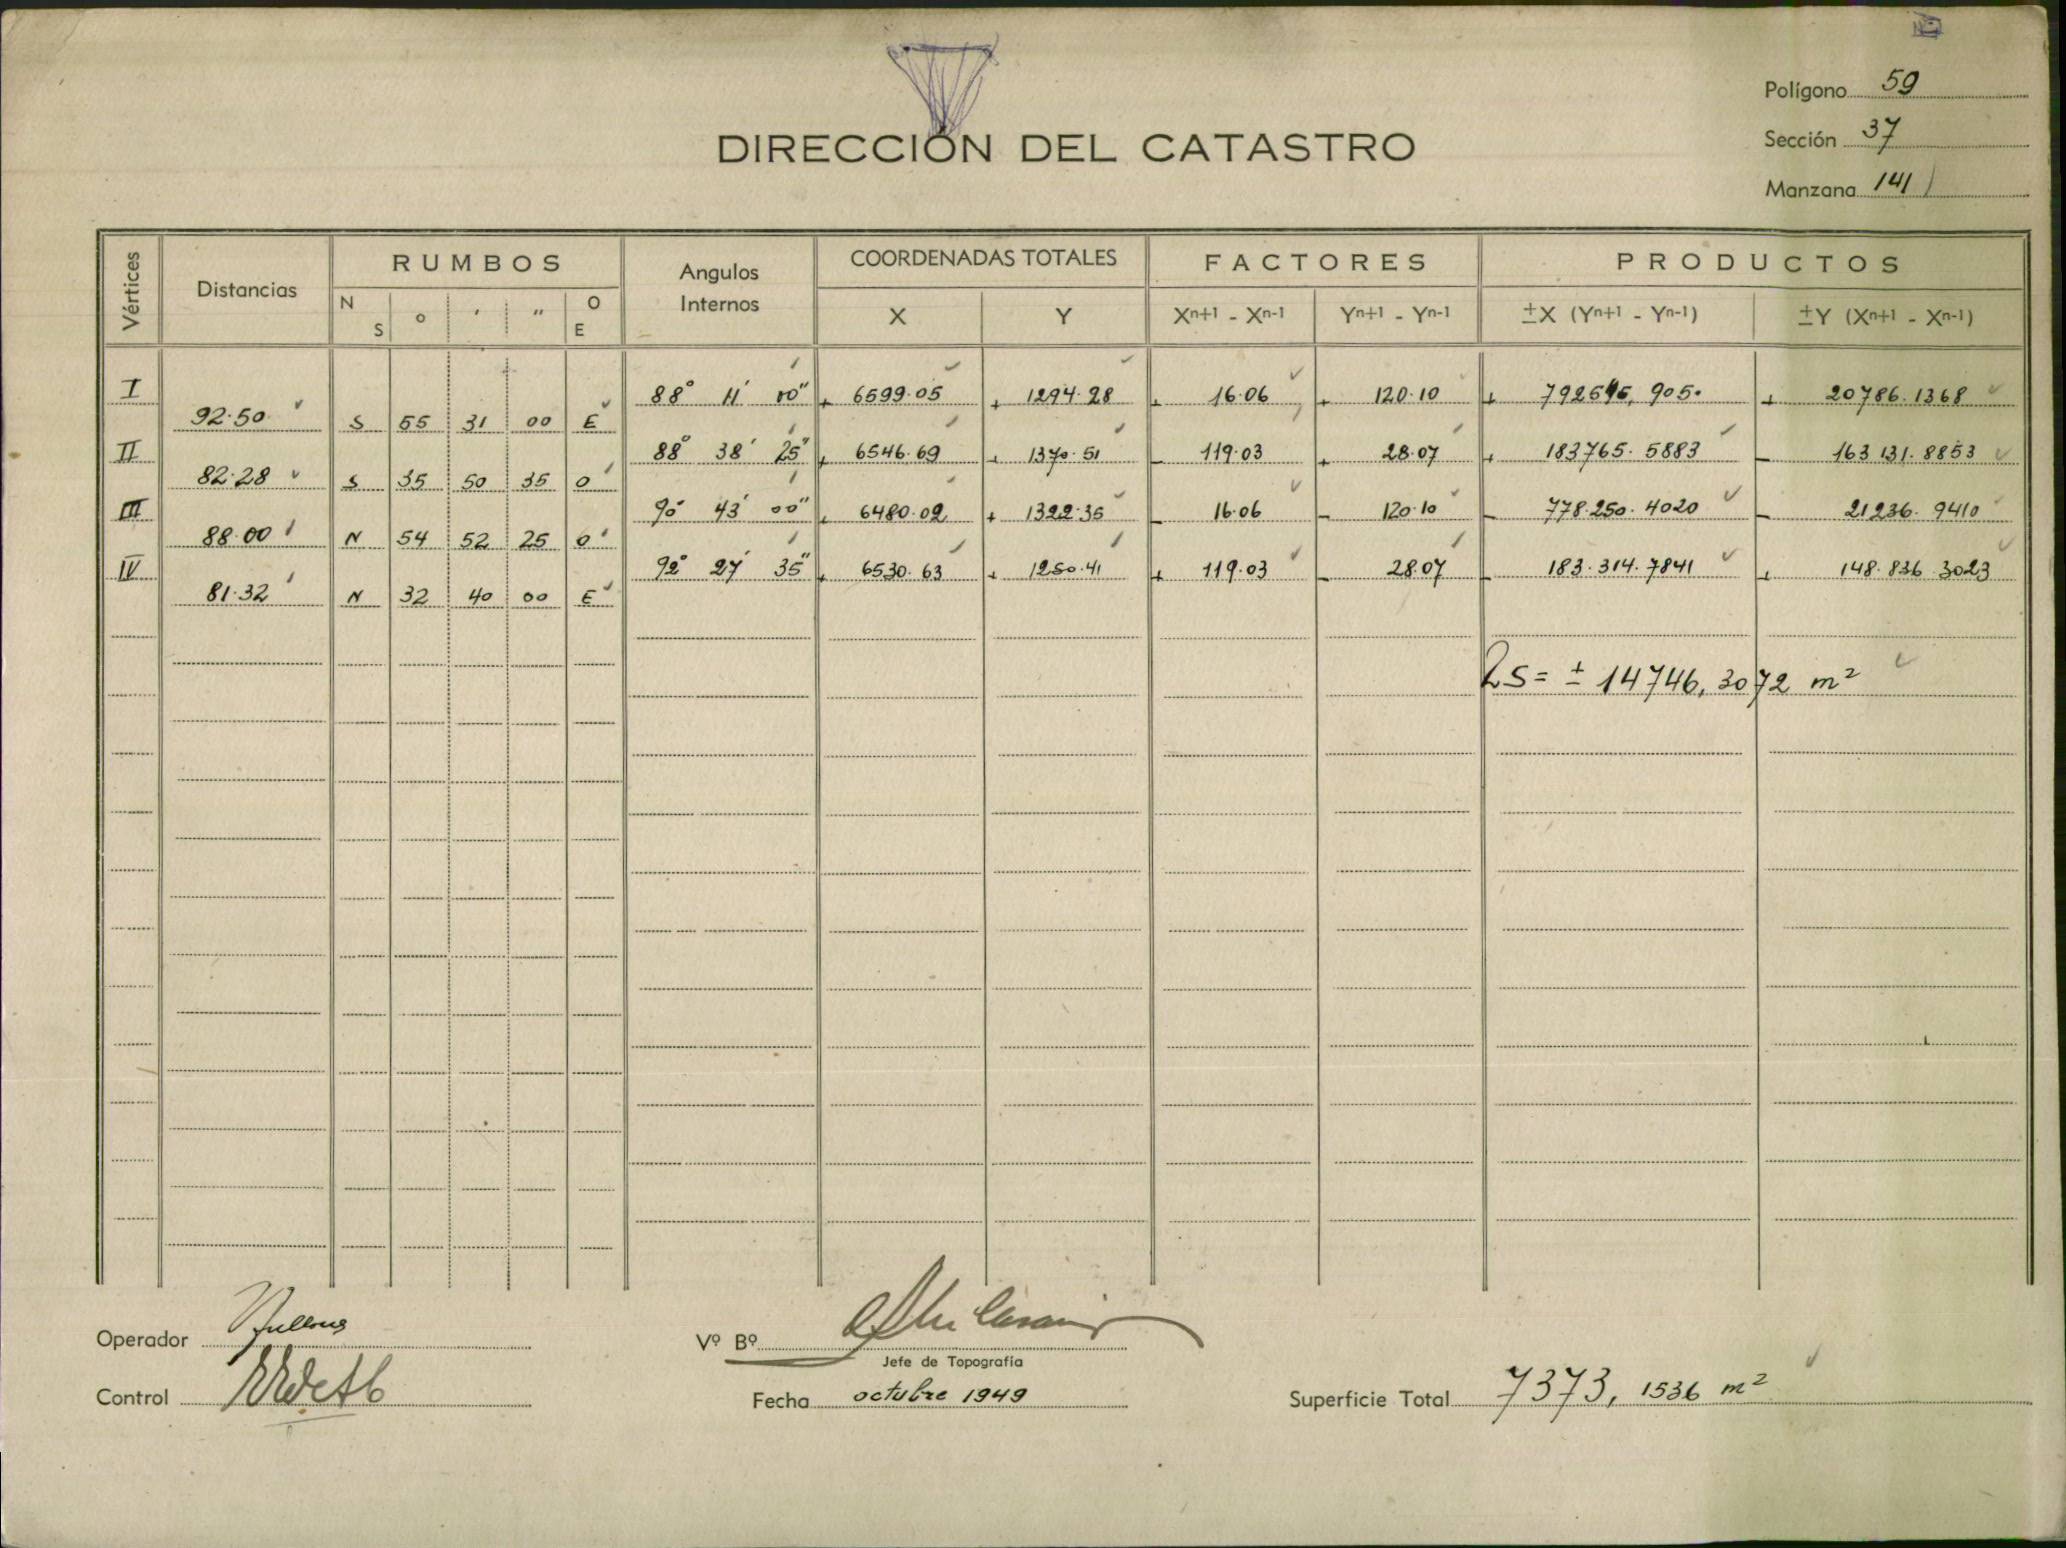 Polígono 59
DIRECCIÓN DEL CATASTRO
Sección 37
Manzana 141
Vértices Distancias RUMBOS Angulos Internos COORDENADAS TOTALES FACTORES PRODUCTOS
N S ° ′ ″ O E X Y Xn+1 - Xn-1 Yn+1 - Yn-1 ±X (Yn+1 - Yn-1) ±Y (Xn+1 - Xn-1)
I 88° 11′ 00″ + 6599.05 + 1294.28 + 16.06 + 120.10 + 792545, 9050 + 20786.1368
92.50 S 55 31 00 E
II 88° 38′ 25″ + 6546.69 + 1370.51 - 119.03 + 28.07 + 183765.5883 - 163 131.8853
82.28 S 35 50 35 O
III 90° 43′ 00″ + 6480.02 + 1322.35 - 16.06 - 120.10 - 778.250.4020 - 21236.9410
88.00 N 54 52 25 O
IV 92° 27′ 35″ + 6530.63 + 1250.41 + 119.03 - 28.07 - 183.314.7841 + 148.836 3023
81.32 N 32 40 00 E
2S = ± 14746,3072 m²
Operador
Vº Bº
Jefe de Topografía
Control
Fecha octubre 1949
Superficie Total 7373, 1536 m²